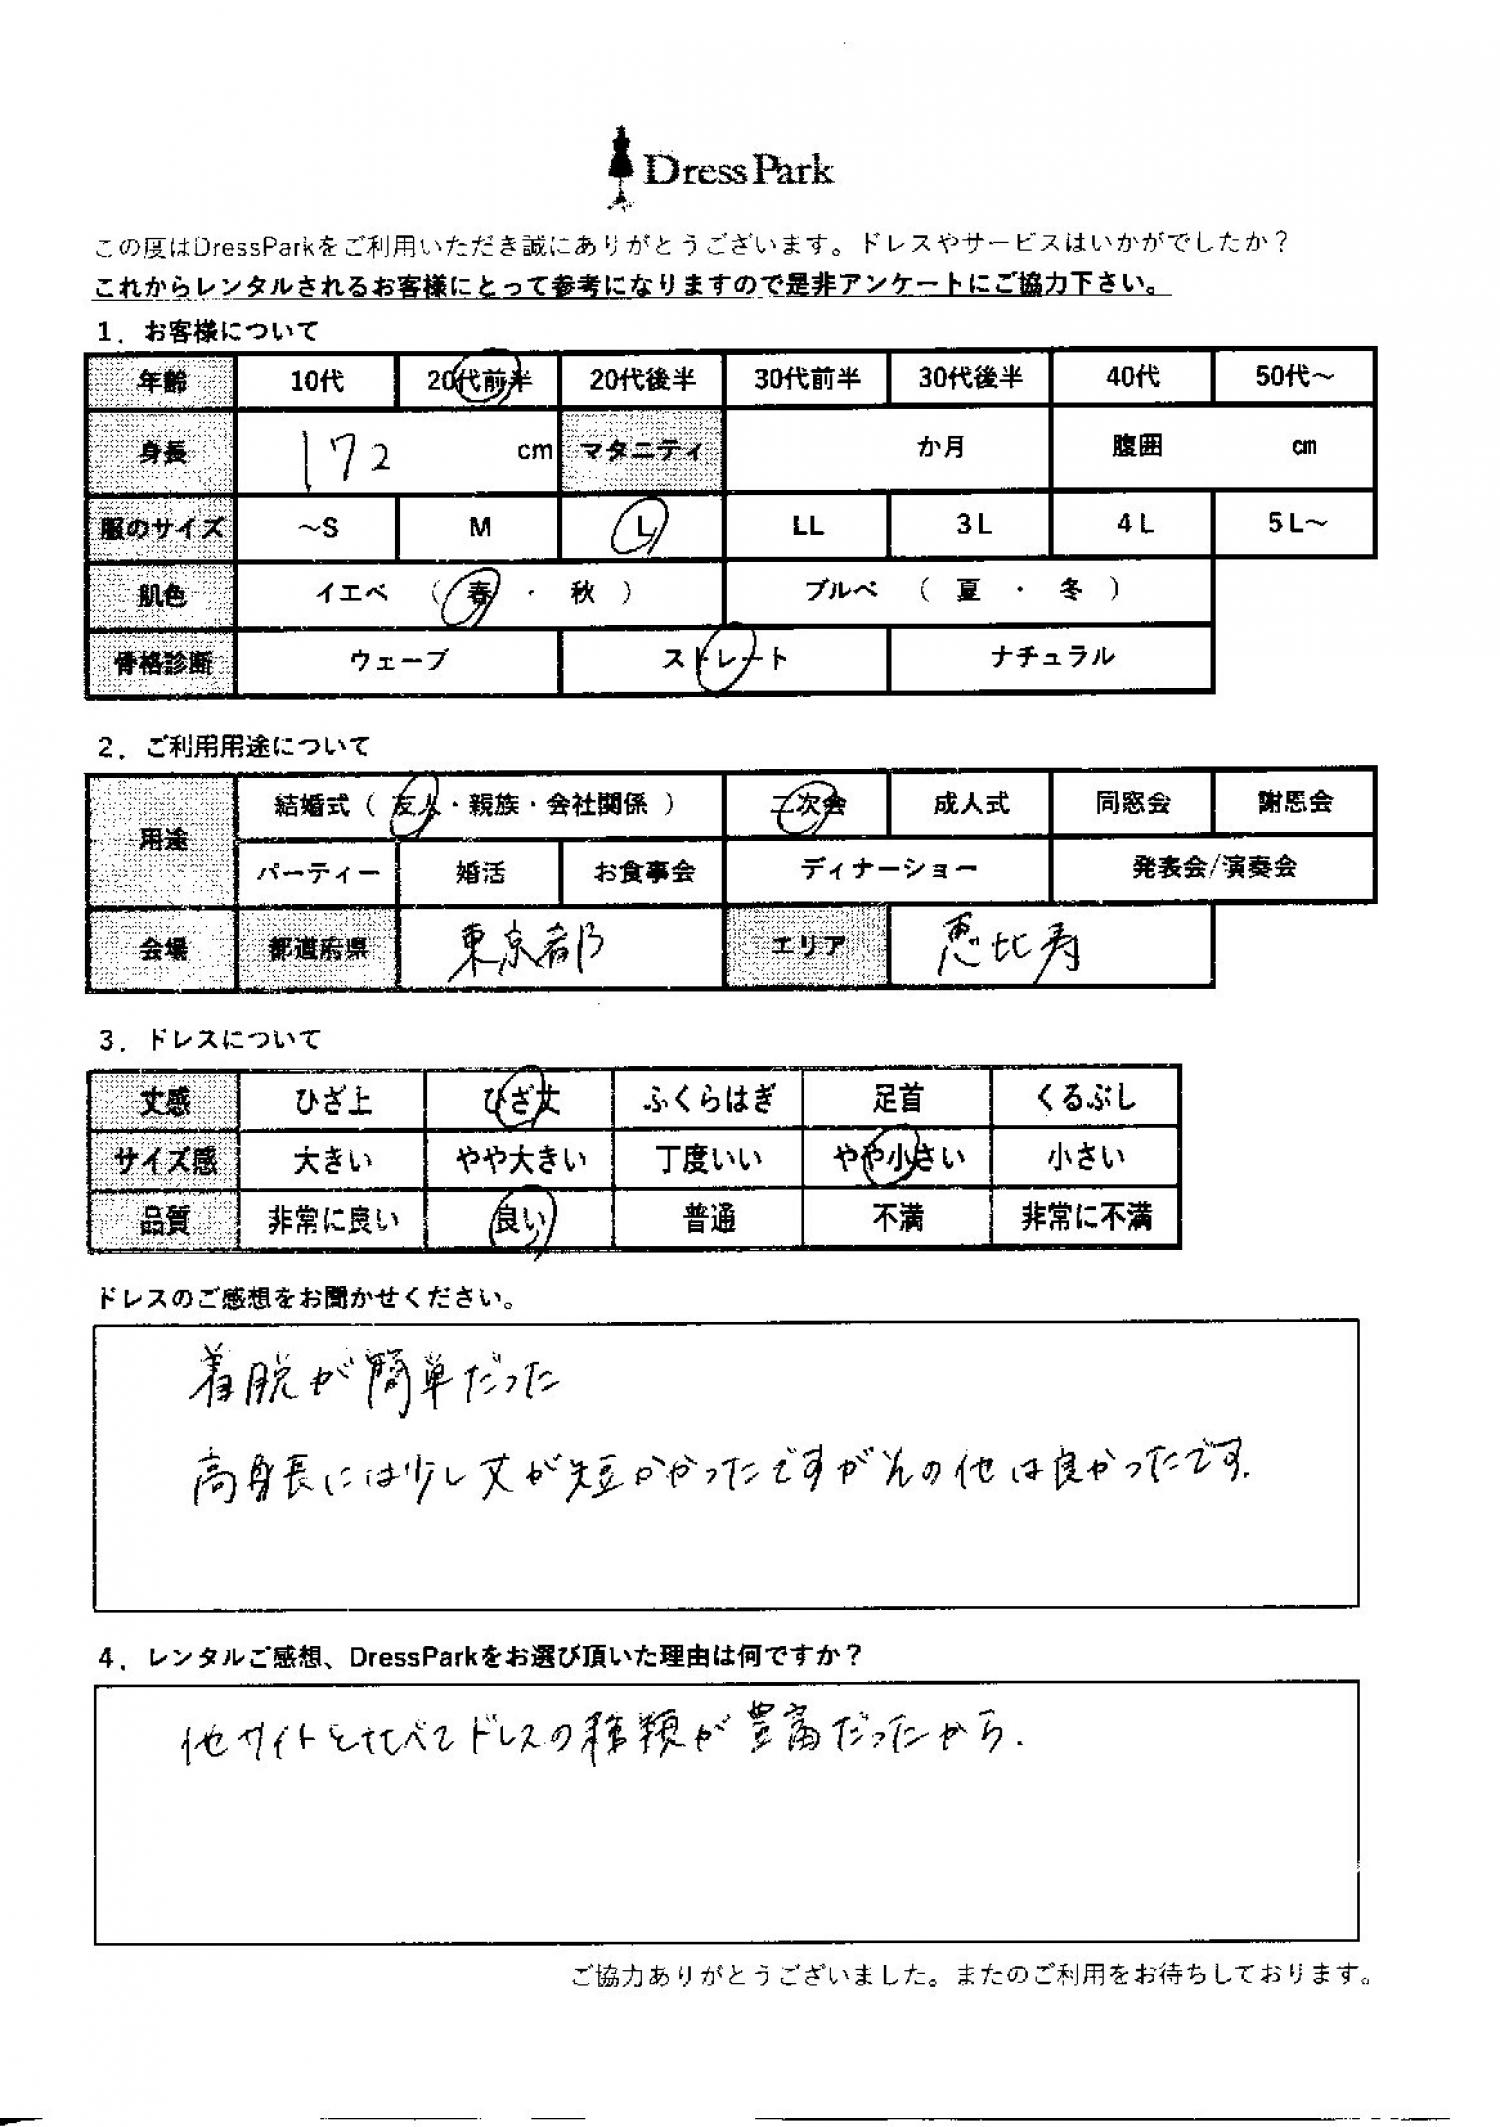 DressPark
この度はDressParkをご利用いただき誠にありがとうございます。ドレスやサービスはいかがでしたか？
これからレンタルされるお客様にとって参考になりますので是非アンケートにご協力下さい。
1．お客様について
年齢 10代 20代前半 20代後半 30代前半 30代後半 40代 50代～
身長 172 cm マタニティ か月 腹囲 cm
服のサイズ ～S M L LL 3L 4L 5L～
肌色 イエベ （ 春 ・ 秋 ） ブルベ （ 夏 ・ 冬 ）
骨格診断 ウェーブ ストレート ナチュラル
2．ご利用用途について
用途 結婚式（ 友人・親族・会社関係 ） 二次会 成人式 同窓会 謝恩会
パーティー 婚活 お食事会 ディナーショー 発表会/演奏会
会場 都道府県 東京都 エリア 恵比寿
3．ドレスについて
丈感 ひざ上 ひざ丈 ふくらはぎ 足首 くるぶし
サイズ感 大きい やや大きい 丁度いい やや小さい 小さい
品質 非常に良い 良い 普通 不満 非常に不満
ドレスのご感想をお聞かせください。
着脱が簡単だった
高身長には少し丈が短かかったですがその他は良かったです.
4．レンタルご感想、DressParkをお選び頂いた理由は何ですか？
他サイトと比べてドレスの種類が豊富だったから.
ご協力ありがとうございました。またのご利用をお待ちしております。